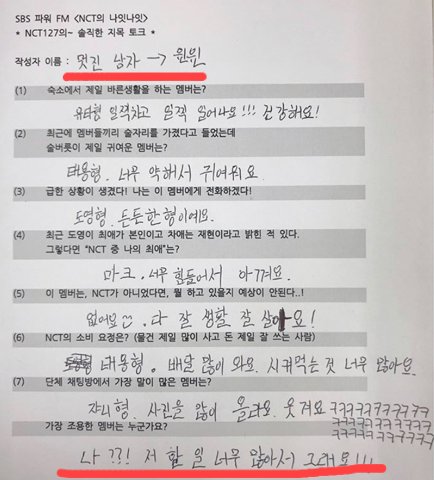 SBS 파워 FM <NCT의 나잇나잇>
* NCT127의~ 솔직한 지목 토크 *
작성자 이름 : 멋진 남자 → 윈윈
(1) 숙소에서 제일 바른생활을 하는 멤버는?
유타형 일찍자고 일찍 일어나요!!! 건강해요!
(2) 최근에 멤버들끼리 술자리를 가졌다고 들었는데
술버릇이 제일 귀여운 멤버는?
태용형. 너무 약해서 귀여워요.
(3) 급한 상황이 생겼다! 나는 이 멤버에게 전화하겠다!
도영형. 든든한 형이에요.
(4) 최근 도영이 최애가 본인이고 차애는 재현이라고 밝힌 적 있다.
그렇다면 "NCT 중 나의 최애"는?
마크. 너무 힘들어서 아껴요.
(5) 이 멤버는, NCT가 아니었다면, 뭘 하고 있을지 예상이 안된다..!
없어요. 다 잘 생활 잘 살아요!
(6) NCT의 소비 요정은? (물건 제일 많이 사고 돈 제일 잘 쓰는 사람)
태용형. 배달 많이 와요. 시켜먹는 것 너무 많아요.
(7) 단체 채팅방에서 가장 말이 많은 멤버는?
쟈니형. 사진을 많이 올려요. 웃겨요 ㅋㅋㅋㅋㅋㅋㅋㅋ
ㅋㅋㅋㅋㅋㅋㅋㅋ
가장 조용한 멤버는 누군가요? ㅋㅋㅋㅋㅋㅋㅋㅋ
나??! 저 할 일 너무 많아서 그래요!!!